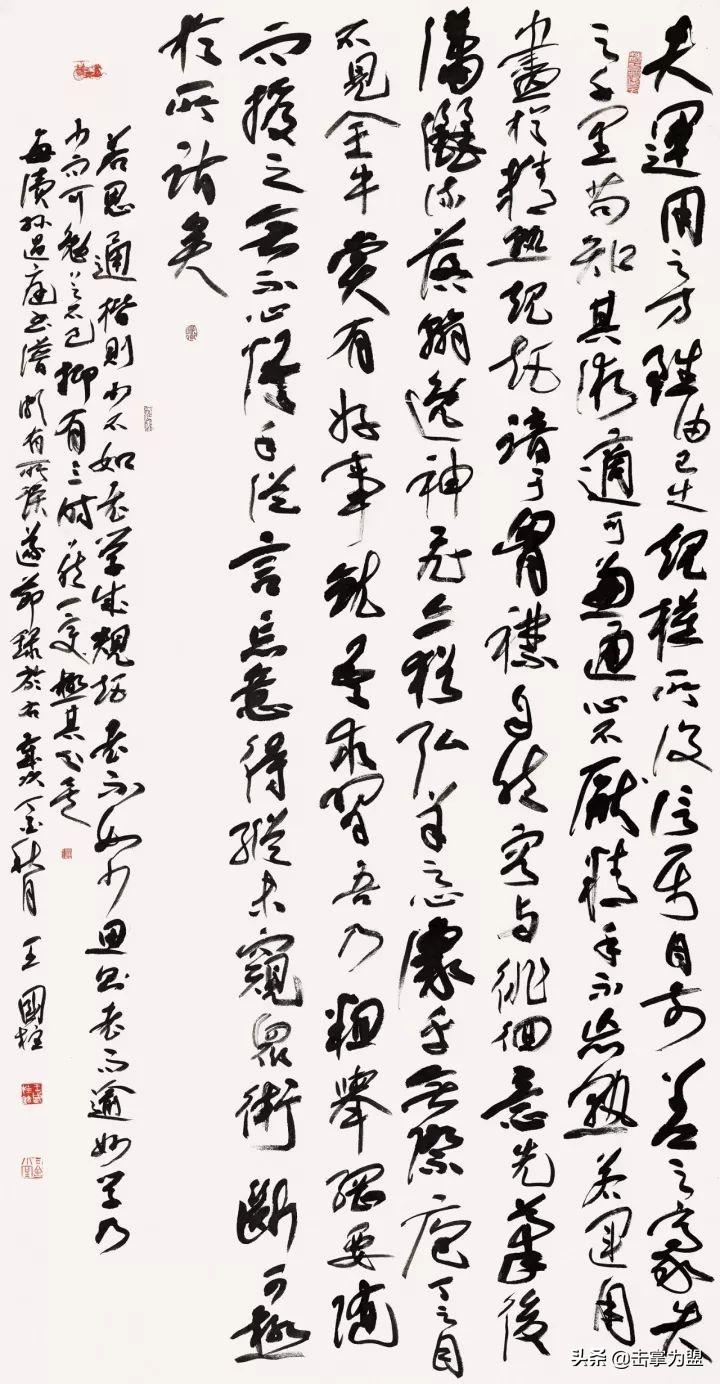 夫運用之方雖由己出規模所設信屬目前差之豪失
之千里苟知其術適可兼通心不厭精手不忘熟若運用
盡於精熟規矩諳于胸襟自然容與徘徊意先筆後
瀟灑流落翰逸神飛亦猶弘羊之心豫乎無際庖丁之目
不見全牛嘗有好事就吾求習吾乃粗舉綱要隨
而授之無不心悟手從言忘意得縱未窺眾術斷可極
於所詣矣
若思通楷則少不如老學成規矩老不如少思則老而逾妙學乃
少而可勉勉之不已抑有三時時然一變極其分矣
每讀孫過庭書譜頗有所獲遂節錄於右歲次丁酉秋月王國柱
头条 @击掌为盟